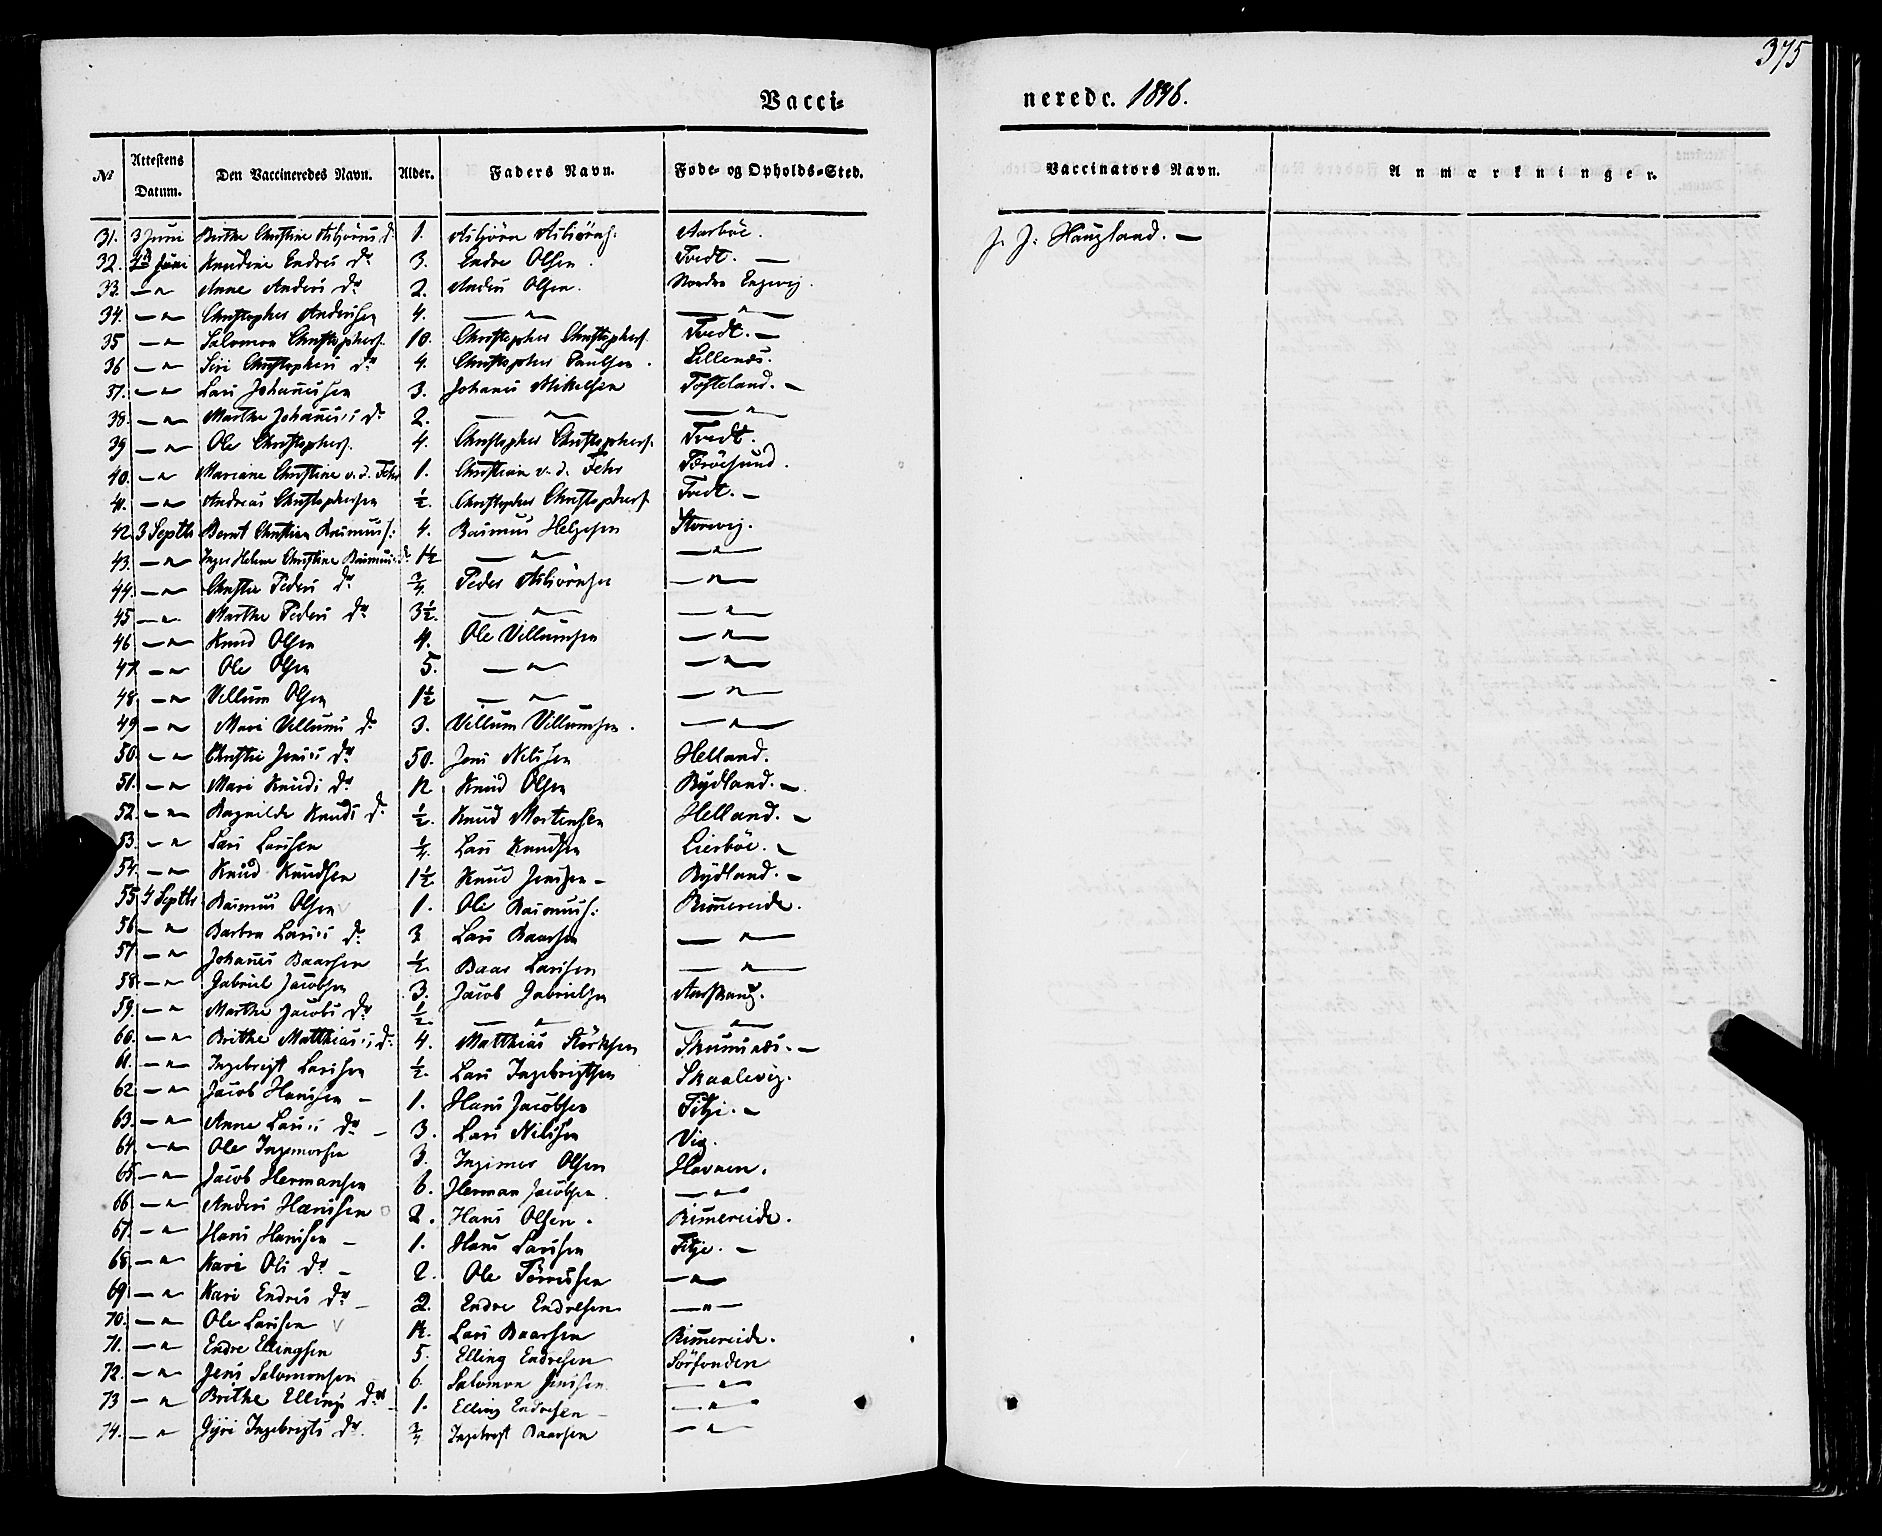 375
Vacci=
nerede. 1846.
No Attestens Datum. Den Vaccineredes Navn. Alder. Faders Navn. Føde- og Opholds-Sted. Vaccinators Navn. Anmærkninger.
31. 3 Juni Birthe Christine Asbjörns d. 1. Asbjörn Asbjörns. Aarböe. J. J. Haugland. —
32. Juni Knudine Endres Dr 3. Endre Olsen. Tvedt. —
33. — " Anne Anders Dr 2. Anders Olsen. Nordre Engevig.
34. — " Christopher Andersen 4. — " — — " —
35 — " Salomon Christophers. 10. Christopher Christophers. Tvedt. —
36 — " Siri Christophers Dr 4. Christopher Paulsen. Lillenæs.
37. — " Lars Johannessen 3. Johanes Mikelsen Tofteland. —
38. — " Marthe Johanes Dr 2. — " — — " —
39 — " Ole Christophers. 4. Christopher Christophers. Tvedt.
40. — " Mareane Christine v. d. Fehr 1. Christian v. d. Fehr Terøesund.
41. — " Andreas Christophersen ½. Christopher Christophers. Tvedt. —
42. 3 Septbr Bernt Christian Rasmus: 4. Rasmus Helgesen Storevig.
43. — " Inger Helene Christine Rasmus d. 1½ — " — — " —
44. — " Christie Peders Dr ¾. Peder Asbjörnsen — " —
45 — " Marthe Peders Dr 3½. — " — — " —
46 — " Knud Olsen 4. Ole Villumsen — " —
47. — " Ole Olsen 5. — " — — " —
48. — " Villum Olsen 1½ — " — — " —
49 — " Mari Villums Dr 3. Villum Villumsen. — " —
50. — " Christie Jenses Dr 50. Jens Nilssen Helland.
51. — " Mari Knuds Dr 12 Knud Olsen Rydland. —
52. — " Ragnilde Knuds Dr ½. Knud Mortensen Helland. —
53. — " Lars Larssen ¼. Lars Knudsen Lierböe. —
54. — " Knud Knudsen 1½ Knud Jensen — Rydland. —
55 4 Septbr Rasmus Olsen 1. Ole Rasmus: Rimmereide.
56 — " Barbra Larses Dr 3 Lars Baarsen — " —
57. — " Johanes Baarsen ½. Baar Larssen — " —
58. — " Gabriel Jacobsen 3. Jacob Gabrielsen
59. — " Marthe Jacobs Dr ½. — " — — " —
60. — " Brithe Matthias's Dr 4. Matthias Störksen —
61. — " Ingebrigt Larssen ½. Lars Ingebrigtsen Skaalevig.
62 — " Jacob Hanssen — 1. Hans Jacobsen Fitje. —
63. — " Anne Larses Dr — 3. Lars Nilssen Vig.
64. — " Ole Ingemorsen 3. Ingimer Olsen Havnen.
65 — " Jacob Hermansen 6. Herman Jacobsen. — " —
66 — " Anders Hanssen 2. Hans Olsen. Rimmereide.
67. — " Hans Hanssen — 1. Hans Larssen Fitje. —
68. — " Kari Ols Dr — 2. Ole Törressen — " —
69 — " Kari Endres Dr — 2. Endre Endresen — " —
70. — " Ole Larssen 12. Lars Baarsen Rimmereide.
71. — " Endre Ellingsen 5. Elling Endresen Sörfonden
72. — " Jens Salomonsen 6. Salomon Jenssen — " —
73 — " Brithe Ellings Dr 1. Elling Endresen — — " —
74. — " Gyri Ingebrigts Dr. ¾ Ingebrigt Baarsen — " —